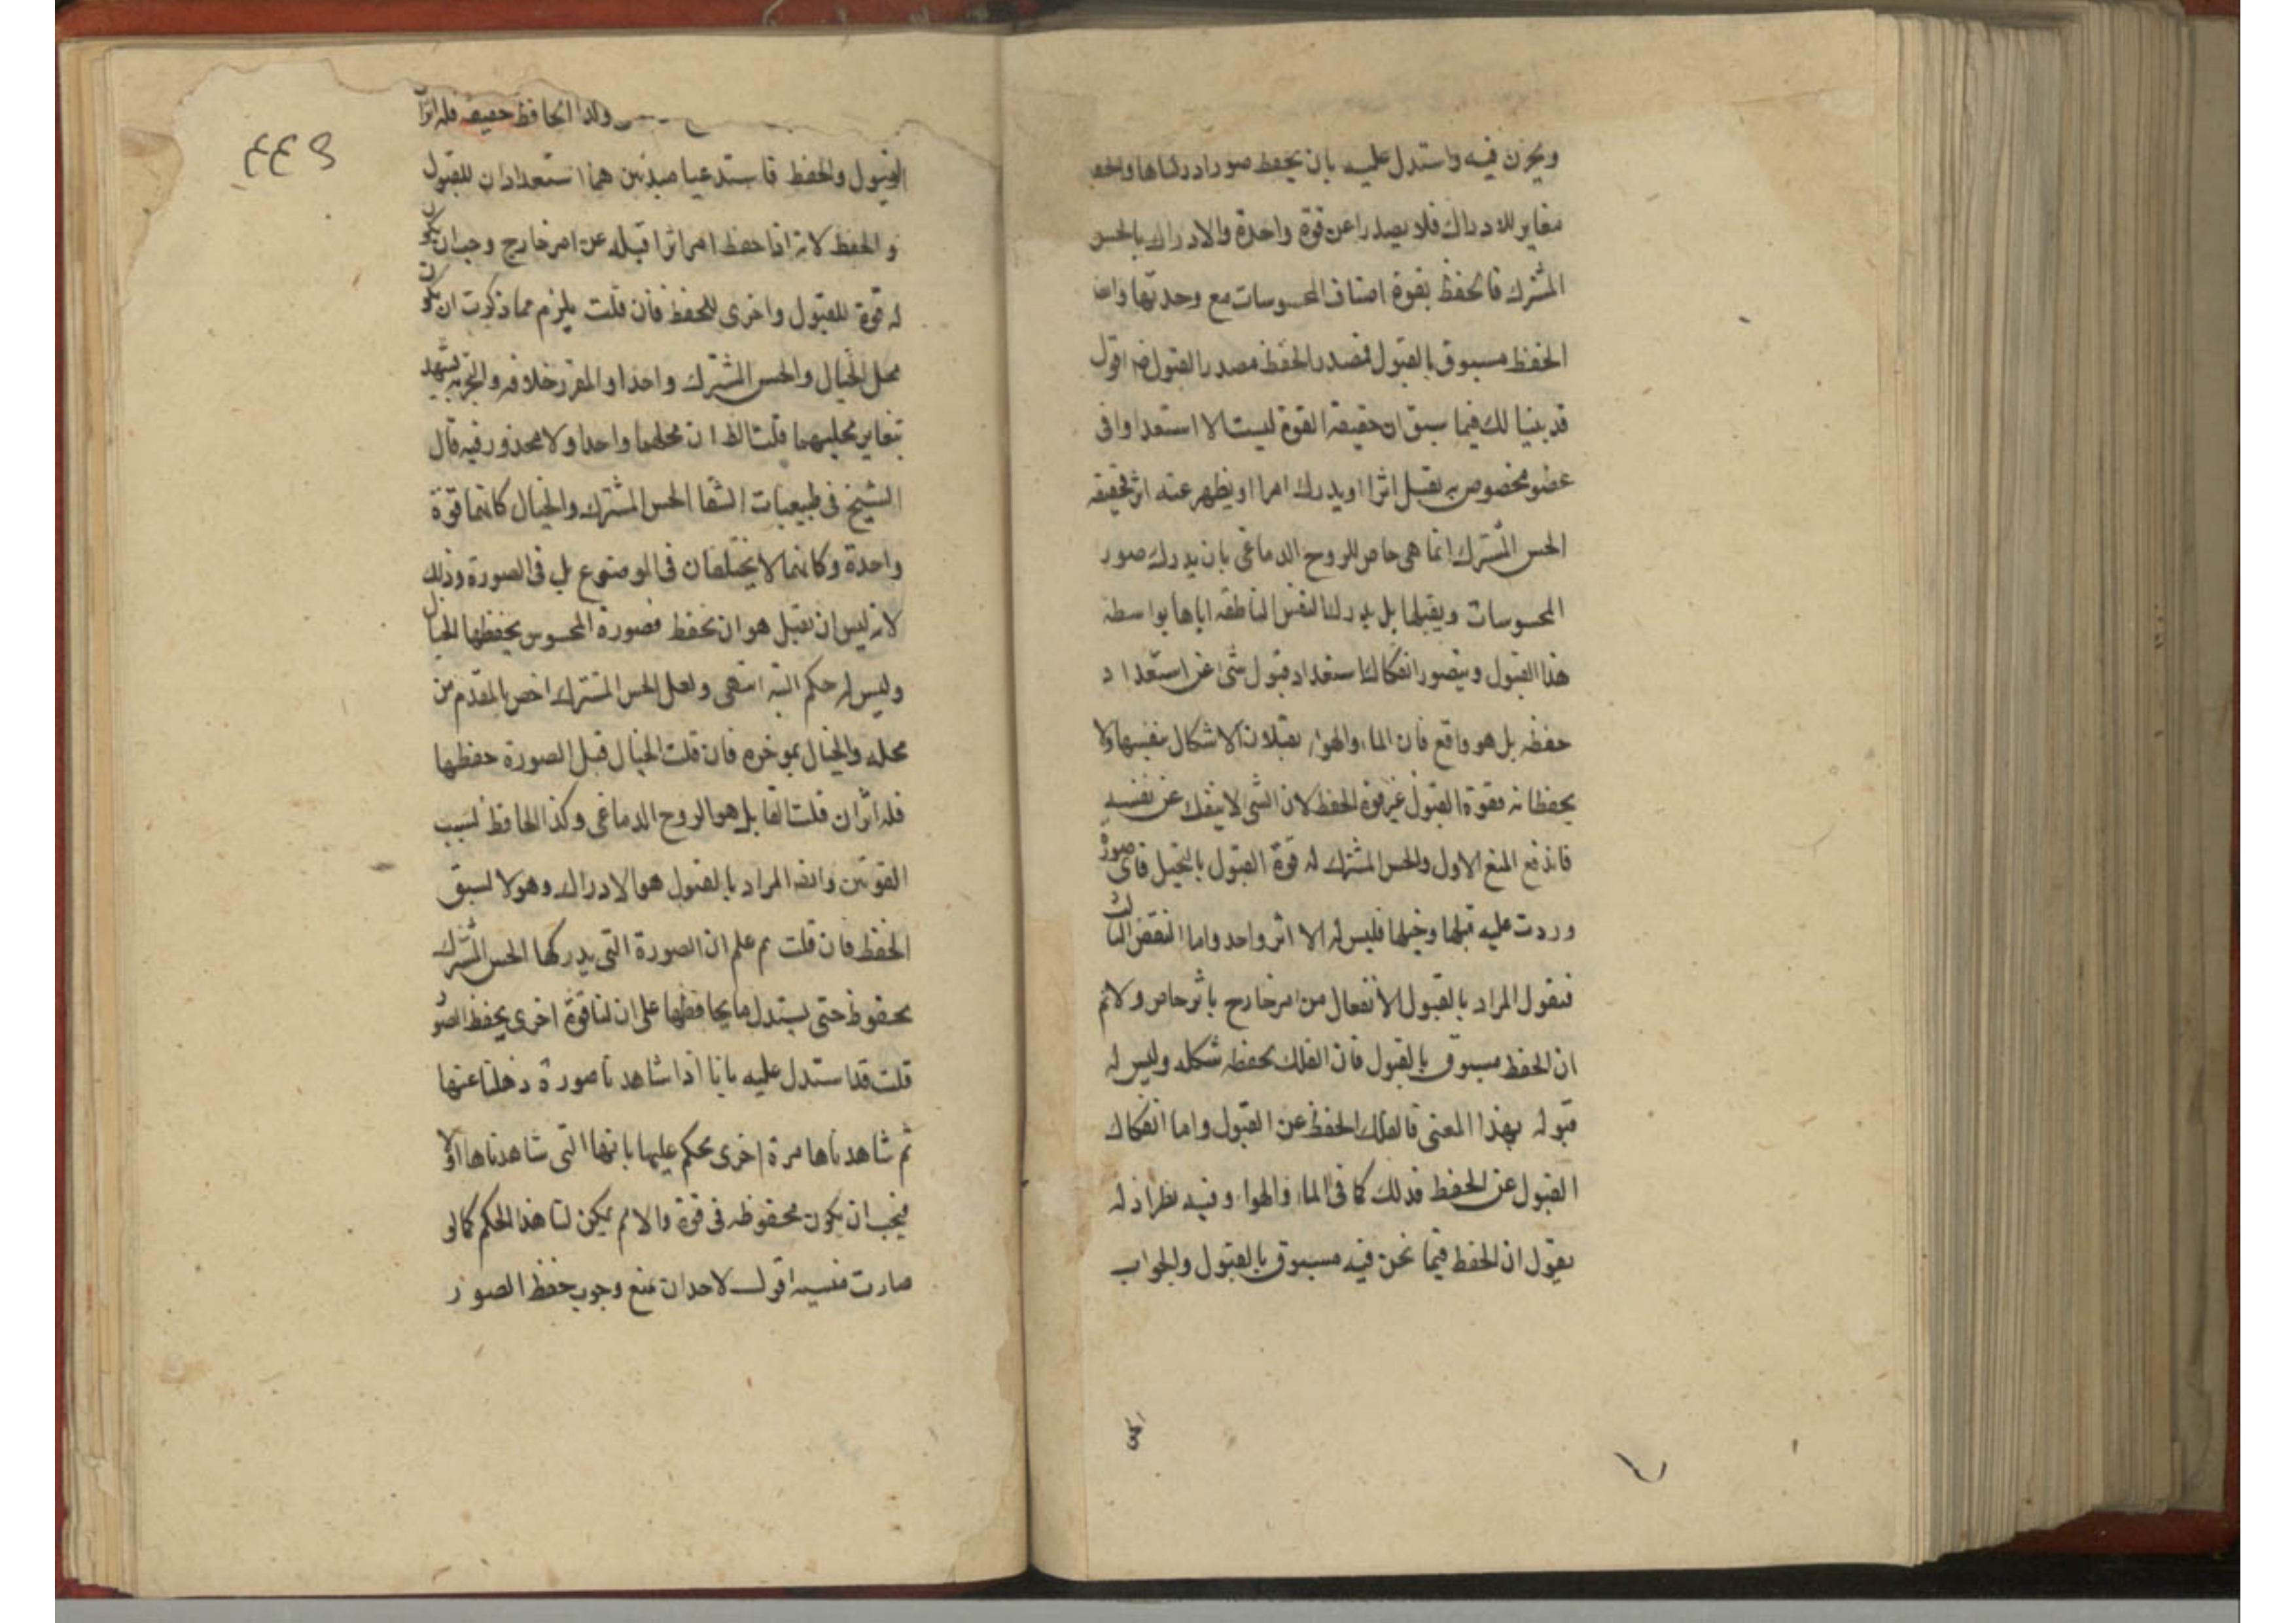 ويخزن فيه واستدل عليه بان يحفظ صورا ادركناها والحفظ
مغاير للادراك فلا يصدرا عن قوة واحدة والادراك بالحس
المشترك فالحفظ بقوة اصناف المحسوسات مع وحدتها وايضا
الحفظ مسبوق بالقبول فمصدر الحفظ مصدر القبول اقول
قد بينا لك فيما سبق ان حقيقة القوة ليست الا استعدادا في
عضو مخصوص به يقبل اثرا او يدرك امرا او يظهر عنه اثر فحقيقة
الحس المشترك انما هي خاص للروح الدماغي بان يدرك صور
المحسوسات ويقبلها بل يدرك النفس الناطقة اياها بواسطة
هذا القبول ويتصور انفكاك استعداد قبول شئ عن استعداد
حفظه بل هو واقع فان الماء والهواء يقبلان الاشكال بنفسها ولا
يحفظانه فقوة القبول غير قوة الحفظ لان الشئ لا ينفك عن نفسه
فاندفع المنع الاول والحس المشترك له قوة القبول بالتخيل فاى صورة
وردت عليه قبلها وخيلها فليس له الا اثر واحد واما النقض الثالث
فنقول المراد بالقبول الانفعال من امر خارج باثر خاص ولا نم
ان الحفظ مسبوق بالقبول فان الفلك يحفظ شكله وليس له
قبوله بهذا المعنى فالفلك الحفظ عن القبول واما انفكاك
القبول عن الحفظ فذلك كما في الماء والهواء وفيه نظر اذ له
يقول ان الحفظ فيما نحن فيه مسبوق بالقبول والجواب
٤٤٩
ولذا الحافظ حقيقة فله اثرا
القبول والحفظ فاستدعيا مبدئين هما استعدادان للقبول
والحفظ لانه اذا حفظ امر اثرا قبله عن امر خارج وجب ان يكون
له قوة للقبول واخرى للحفظ فان قلت يلزم مما ذكرت ان يكون
محل الخيال والحس المشترك واحدا والمقرر خلافه والتجربة تشهد
بتغاير محليهما قلت الظ ان محلهما واحد ولا محذور فيه قال
الشيخ في طبيعيات الشفا الحس المشترك والخيال كانهما قوة
واحدة وكانهما لا يختلفان في الموضوع بل في الصورة وذلك
لانه ليس ان يقبل هو ان يحفظ فصورة المحسوس يحفظها الخيال
وليس له حكم البتة انتهى ولعل الحس المشترك اخص بالمقدم من
محله والخيال بموخره فان قلت الخيال قبل الصورة حفظها
فله اثران قلت القابل هو الروح الدماغي وكذا الحافظ لسبب
القوتين وايضا المراد بالقبول هو الادراك وهو لا لسبق
الحفظ فان قلت بم علم ان الصورة التي يدركها الحس المشترك
محفوظ حتى يستدل بما يحافظها على ان لنا قوة اخرى يحفظ الصور
قلت قد استدل عليه بانا اذا شاهدنا صورة ذهلنا عنها
ثم شاهدناها مرة اخرى يحكم عليها بانها التي شاهدناها اولا
فيجب ان يكون محفوظة في قوة والا لم يكن لنا هذا الحكم كما لو
صارت منسية اقول لاحد ان يمنع وجوب حفظ الصور